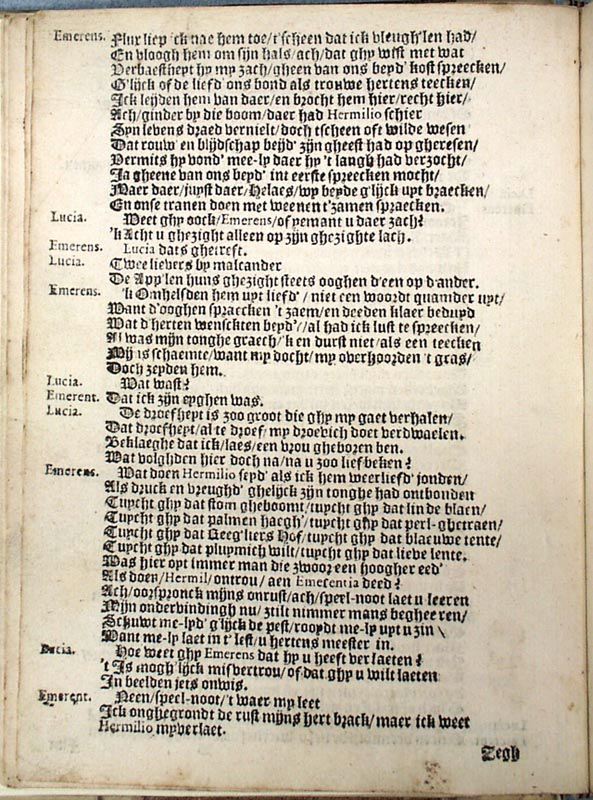 Emerens. Flux liep 'ck nae hem toe/'t scheen dat ick vleugh'len had/
En vloogh hem om sijn hals/ach/dat ghy wist met wat
Verbaestheyt hy my zach/gheen van ons beyd' kost spreecken/
G'lijck of de lief d' ons bond als trouwe hertens teecken/
Ick leyden hem van daer/en brocht hem hier/recht hier/
Ach/ginder by die boom/daer had Hermilio schier
Zyn levens draed vernielt/doch tscheen oft wilde wesen
Dat rouw en blijdschap beyd' zijn gheest had op gheresen/
Vermits hy vond' mee-ly daer hy 't laugh had verzocht/
Ja gheene van ons beyd' int eerste spreecken mocht/
Maer daer/juyst daer/helaes/wy beyde g'lijck uyt braecken/
En onse tranen doen met weenent t'zamen spraecken.
Lucia. Weet ghy oock/Emerens/of yemant u daer zach?
'k Acht u ghezight alleen op zijn ghezighte lach.
Emerens. Lucia dats gheirest.
Lucia. Twee lievers by malcander
De App'len huns ghezight steets ooghen d'een op d'ander.
Emerens. 'k Omhelsden hem uyt liefd' / niet een woordt quamder uyt/
Want d'ooghen spraecken 't zaem/en deeden klaer beduyd
Wat d'herten wenschten beyd'//al had ick lust te spreecken/
Al was mijn tonghe graech/'k en durst niet/als een teecken
Mijns schaemte/want my docht/my overhoorden 't gras/
Doch zeyden hem.
Lucia. Wat wast?
Emerent. Dat ick zijn eyghen was.
Lucia. De droefheyt is zoo groot die ghy my gaet verhalen/
Dat droefheyt/al te droef/my droevich doet verdwaelen.
Beklaeghe dat ick/laes/een vrou gheboren ben.
Wat volghden hier doch na/na u zoo lief beken?
Emerens. Wat doen Hermilio seyd' als ick hem weerliefd' jonden/
Als druck en vreughd' ghelijck zijn tonghe had ontbonden
Tuycht ghy dat stom gheboomt/tuycht ghy dat linde blaen/
Tuycht ghy dat palmen haegh'/tuycht ghy dat perl-ghetraen/
Tuycht ghy dat Geeg'liers Hof/tuycht ghy dat blaeuwe tente/
Tuycht ghy dat pluymich wilt/tuycht ghy dat lieve lente.
Was hier opt immer man die zwoor een hoogher eed'
Als doen/Hermil/ontrou/ aen Emerentia deed?
Ach/oorspronck mijns onrust/ach/sperl-noot laet u leeren
Mijn ondervindingh nu/ztilt nimmer mans begheeren/
Schuwt me-lyd' g'lijck de pest/rooydt me-ly uyt u zin\
Want me-ly laet in 't lest/u hertens meester in.
Lucia. Hoe weet ghy Emerens dat hy u heeft verlaeten?
't Is mogh'lijck misvertrou/of dat ghy u wilt laeten
In beelden jets onwis.
Emerent. Neen/speel-noot/'t waer my leet
Ick onghegrondt de rust mijns hert brack/maer ick weet
Hermilio my verlaet.
Zegh